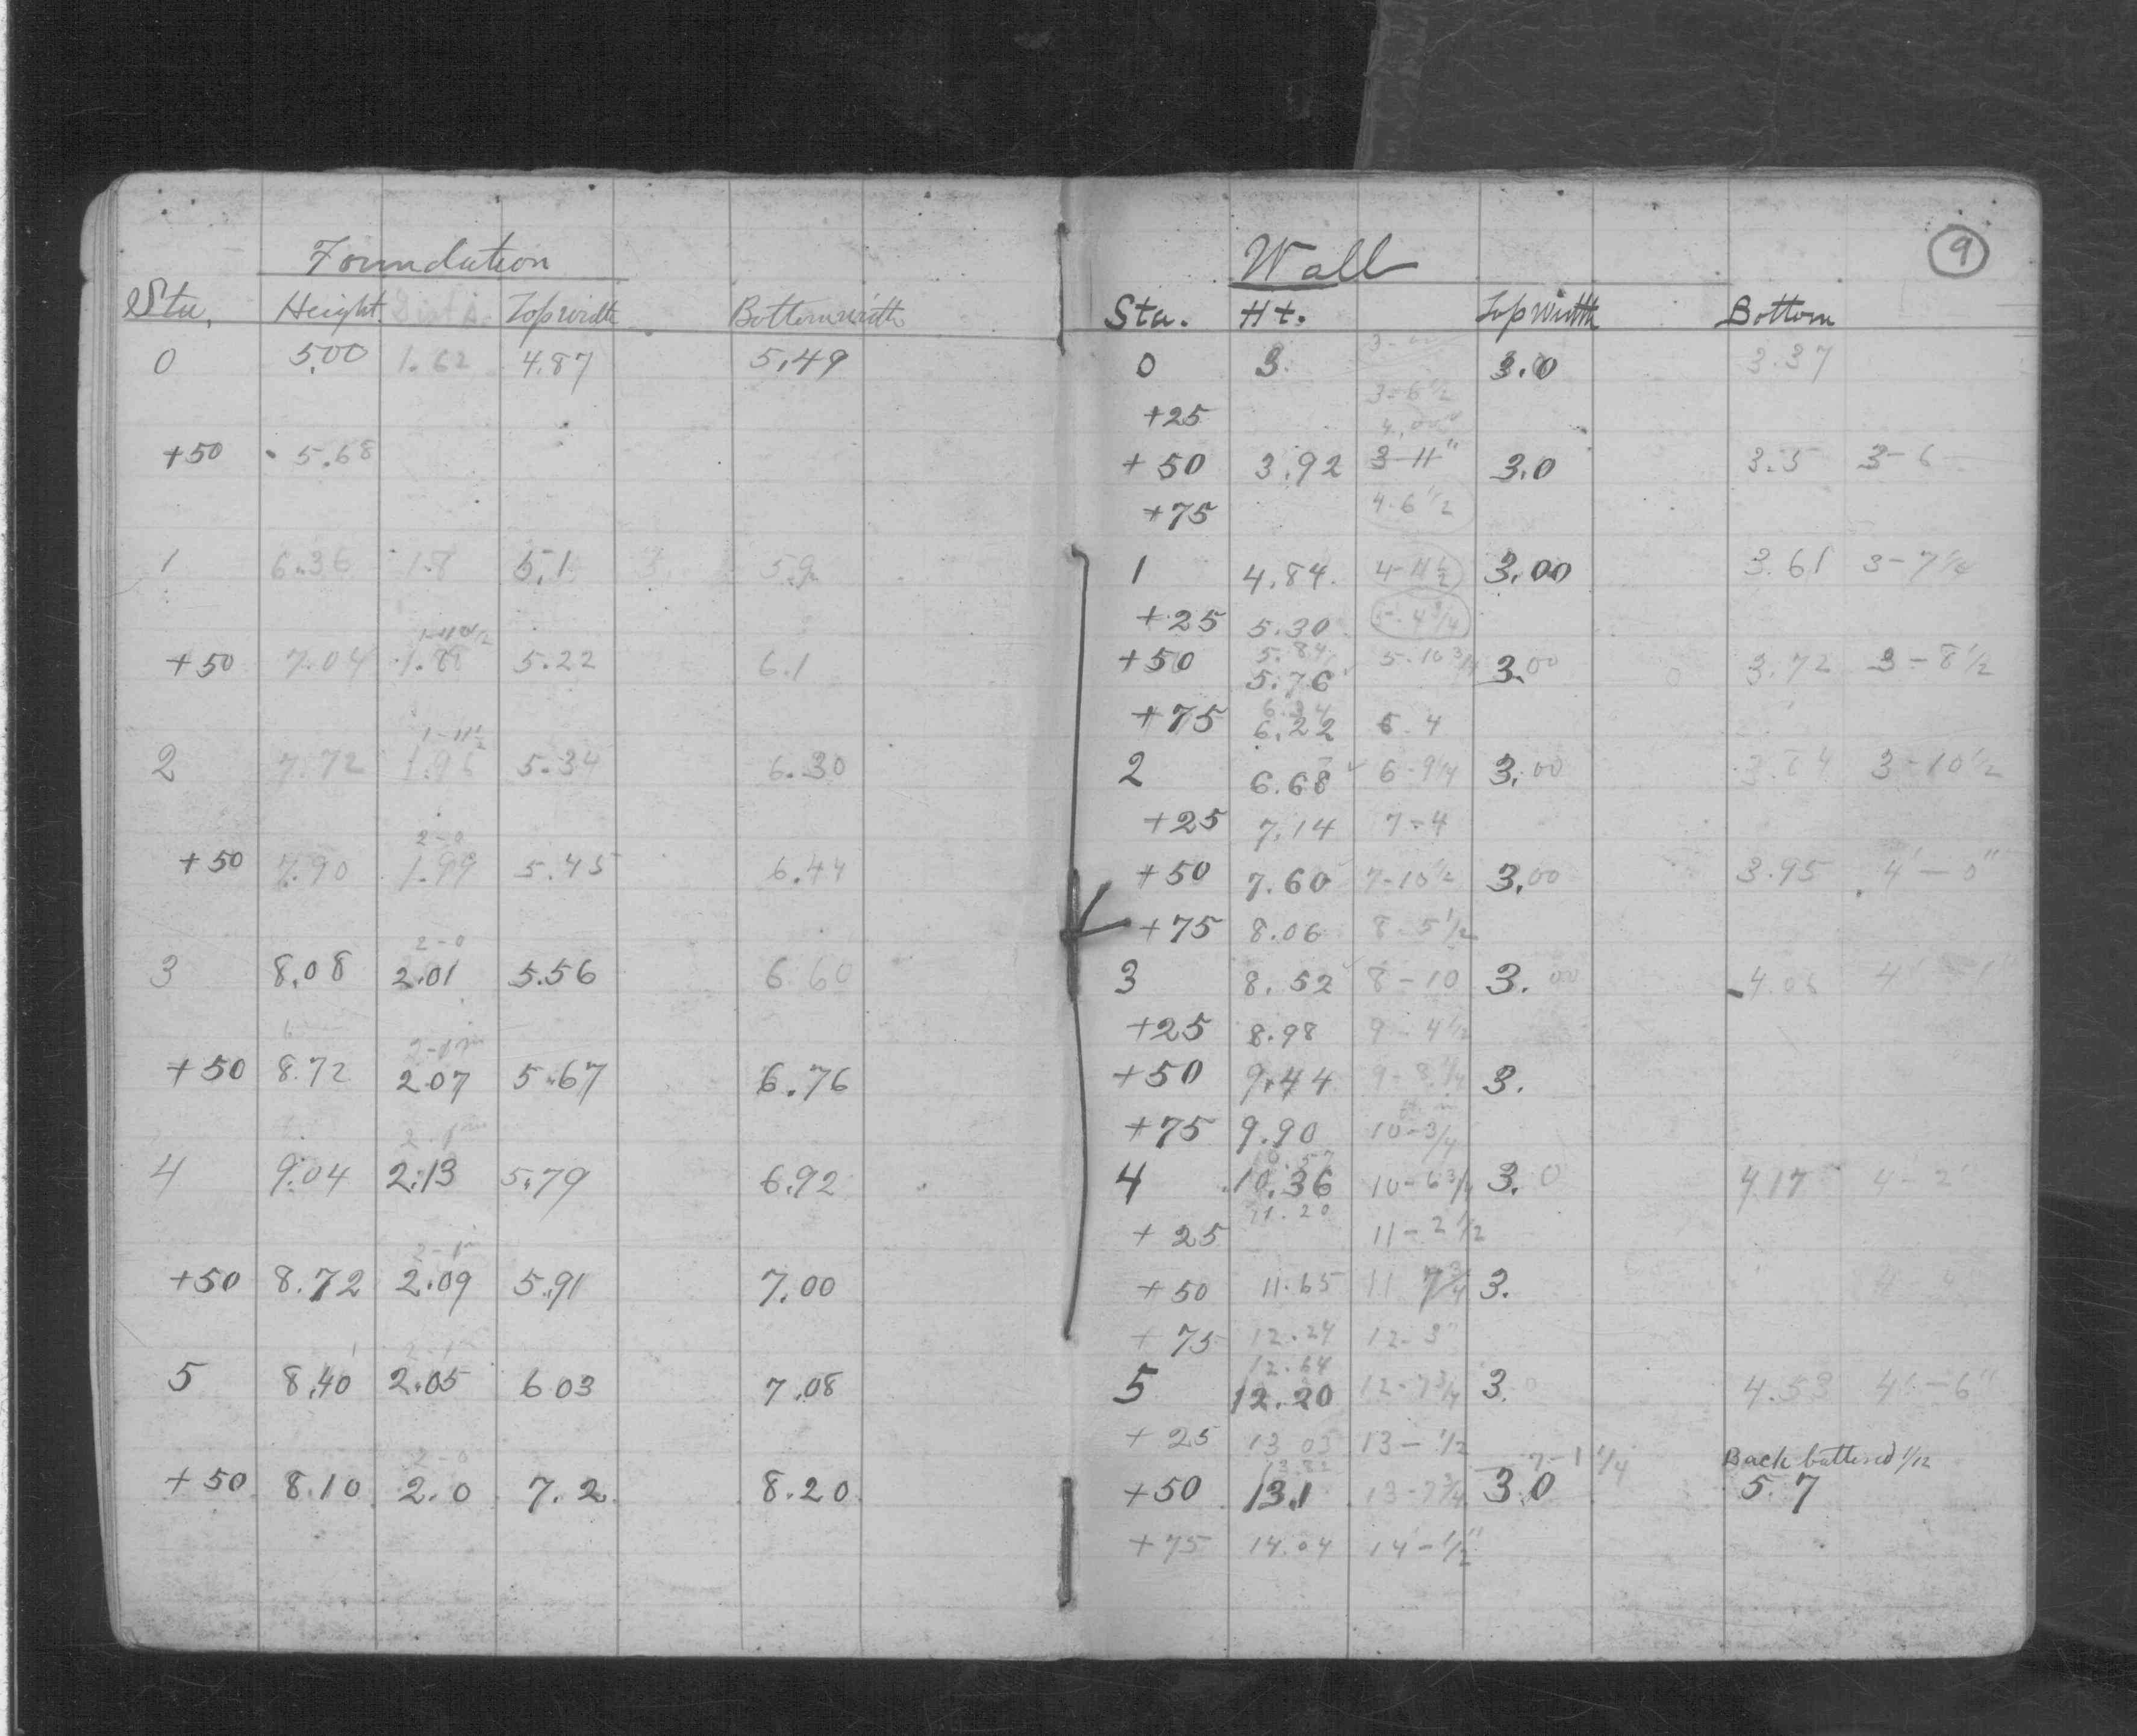 Foundation
Sta. Height Top width Bottom width
0 5.00 1.62 4.87 5.49
+50 5.68
1 6.36 1.8 5.1 5.9
1-10 1/2
+50 7.04 1.88 5.22 6.1
1-11 1/2
2 7.72 1.96 5.34 6.30
2-0
+50 7.90 1.99 5.45 6.44
2-0
3 8.08 2.01 5.56 6.60
+50 8.72 2.07 5.67 6.76
4 9.04 2.13 5.79 6.92
2-1
+50 8.72 2.09 5.91 7.00
2-1
5 8.40 2.05 6 03 7.08
2-0
+50 8.10 2.0 7.2 8.20
9
Wall
Sta. Ht. Top Width Bottom
0 3. 3.0 3.37
3-6 1/2
+25
+50 3.92 3-11" 3.0 3.5 3-6
+75 4.6 1/2
1 4.84 4-11 1/2 3.00 3.61 3-7 1/4
+25 5.30 5-4 3/4
5.84
+50 5.76 5.10 3/4 3.00 3.72 3-8 1/2
6.34
+75 6.22 6.4
2 6.68 6-9 1/4 3.00 3.84 3-10 1/2
+25 7.14 7-4
+50 7.60 7-10 1/2 3.00 3.95 4'-0"
+75 8.06 8-5 1/2
3 8.52 8-10 3.00 4.06 4'-1"
+25 8.98 9-4 1/2
+50 9.44 9-8 1/4 3.
+75 9.90 10-3/4
4 10.36 10-6 3/4 3.0 4.17 4-2
11.20
+25 11-2 1/2
+50 11.65 11 7 3/4 3.
+75 12.24 12-3"
12.64
5 12.20 12-7 3/4 3.0 4.53 4'-6"
+25 13 03 13-1/2
7-1 1/4 Back battered 1/12
13.82
+50 13.1 13-7 3/4 3.0 5.7
+75 14.04 14-1/2"